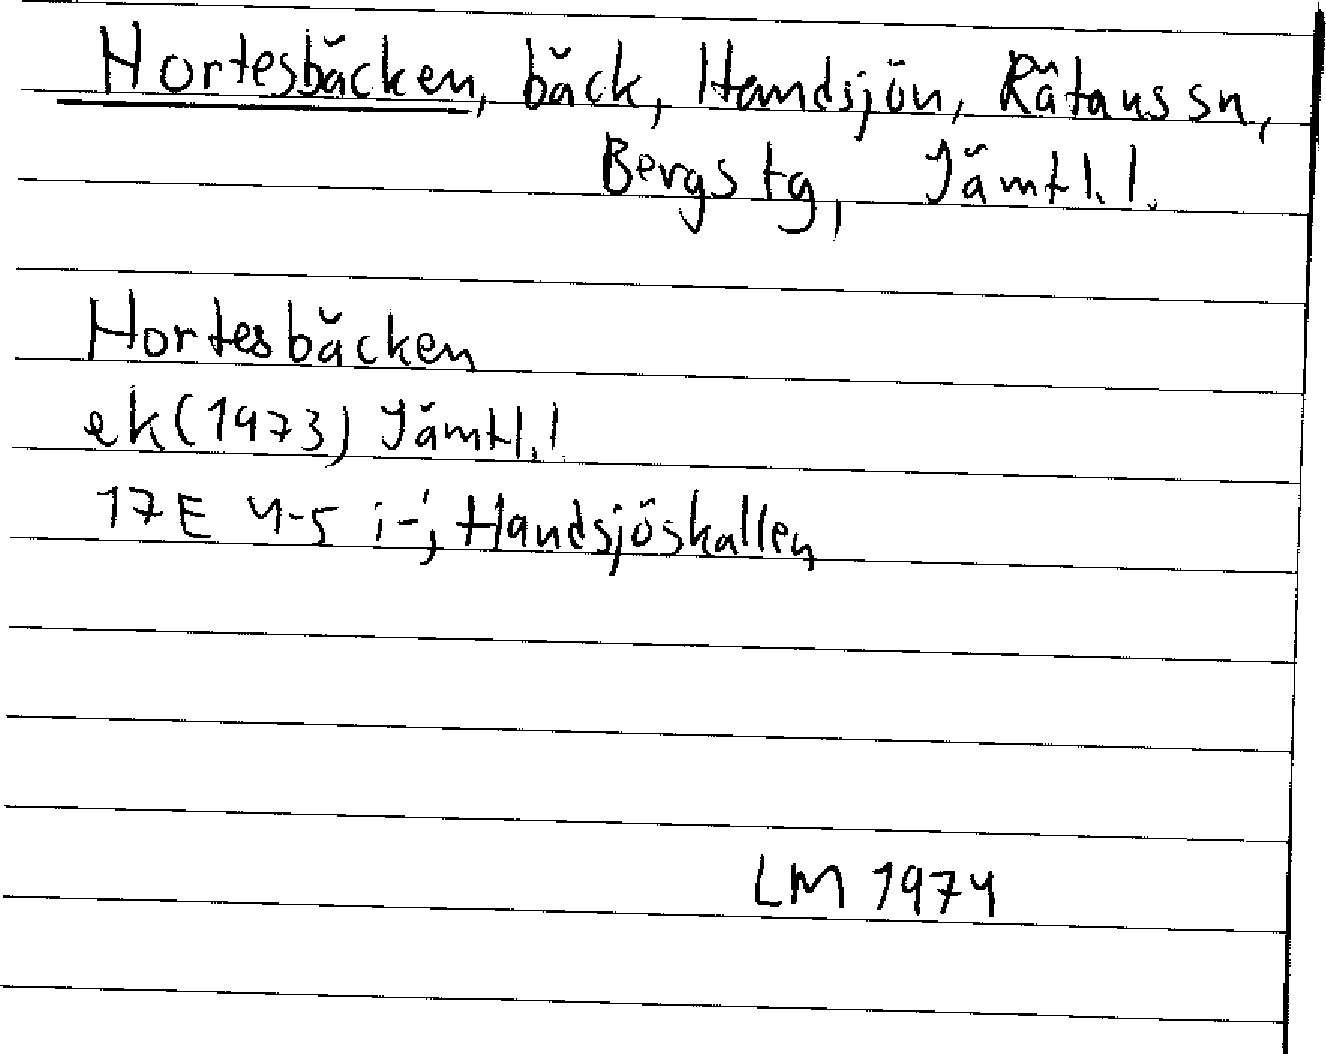 Hortesbäcken, bäck, Handsjön, Rätans sn,
Bergs tg, Jämtl. l.
Hortesbäcken
ek (1973) Jämtl. l.
17E 4-5 i-j, Handsjöskallen
LM 1974